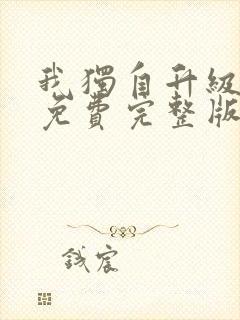 我獨自升級
免費完整版
錢宸